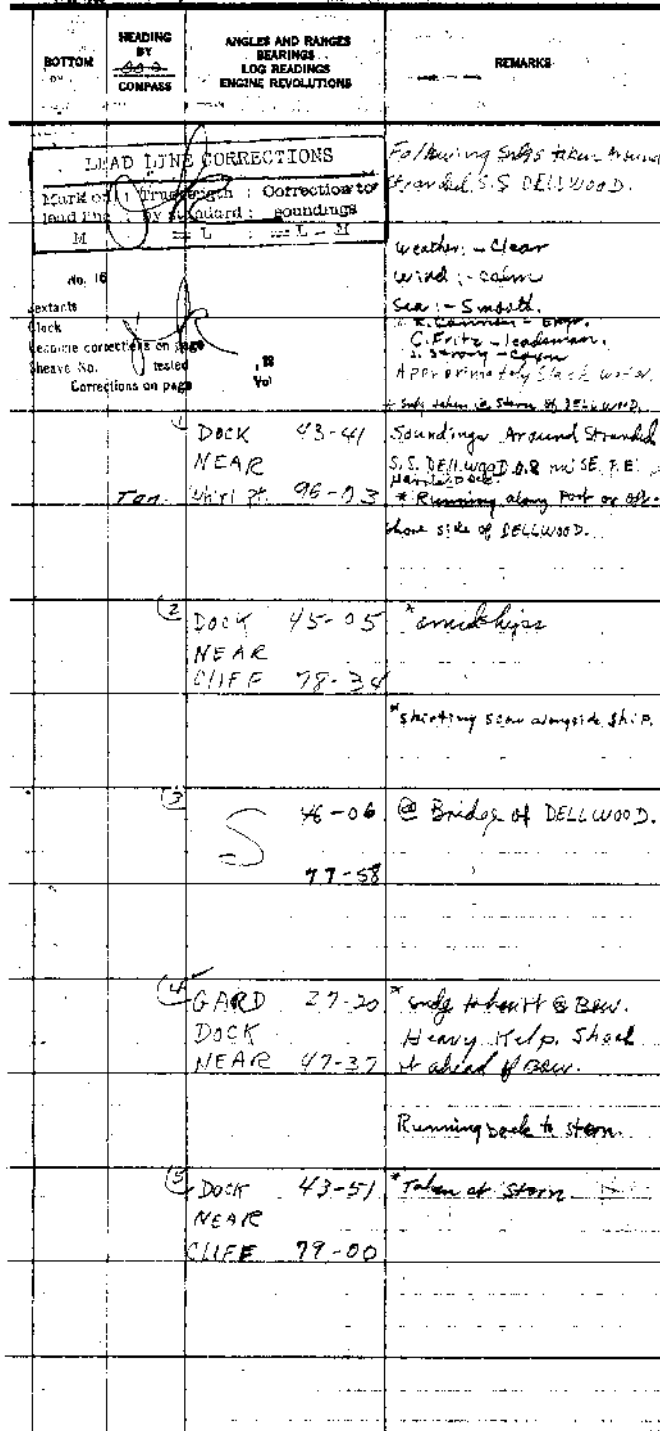 BOTTOM
HEADING
BY
COMPASS
ANGLES AND RANGES
BEARINGS
LOG READINGS
ENGINE REVOLUTIONS
REMARKS
LEAD LINE CORRECTIONS
Mark on : True length : Correction to
lead line : by standard : soundings
M : = L : = L - M
No. 16
Sextants
Clock
Leadline corrections on page
Sheave No. tested , 19
Corrections on page Vol
Following Sndgs taken Around
Stranded S.S DELLWOOD.
Weather; - Clear
Wind ; - calm
Sea : - Smooth.
C. Fritz - leadsman.
S. Strong - Coxn
Approximately Slack water.
sndg taken @ Stern of DELLWOOD.
1 DOCK 43-41
NEAR
Tan. Whirl Pt. 96-03
Soundings Around Stranded
S.S. DELLWOOD 0.8 mi SE
* Running along Port or off-
shore side of DELLWOOD.
2 DOCK 45-05
NEAR
CLIFF 78-34
* amidships
* skirting scow alongside Ship.
3 S 46-06
77-58
@ Bridge of DELLWOOD.
4 GARD 27-20
DOCK
NEAR 47-37
* sndg @ Bow.
Heavy Kelp. Shoal
ahead of Bow.
Running back to stern.
5 DOCK 43-51
NEAR
CLIFF 79-00
* Taken at Stern